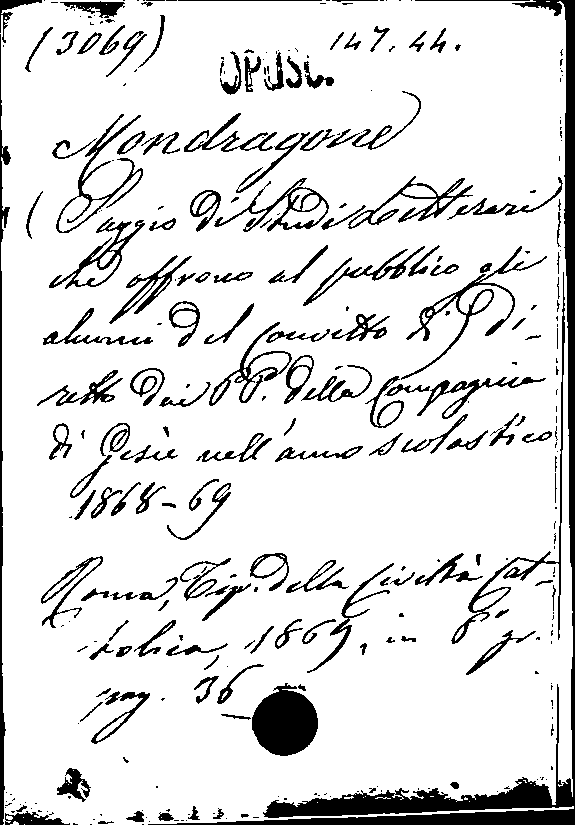 (3069) 147.44.
OPUSC.
Mondragone
(Saggio di Studi Letterari
che offrono al pubblico gli
alunni del Convitto di) di-
retto dai PP. della Compagnia
di Gesù nell'anno scolastico
1868-69
Roma, Tip. della Civiltà Cat-
tolica, 1869, in 8° gr.
pag. 36